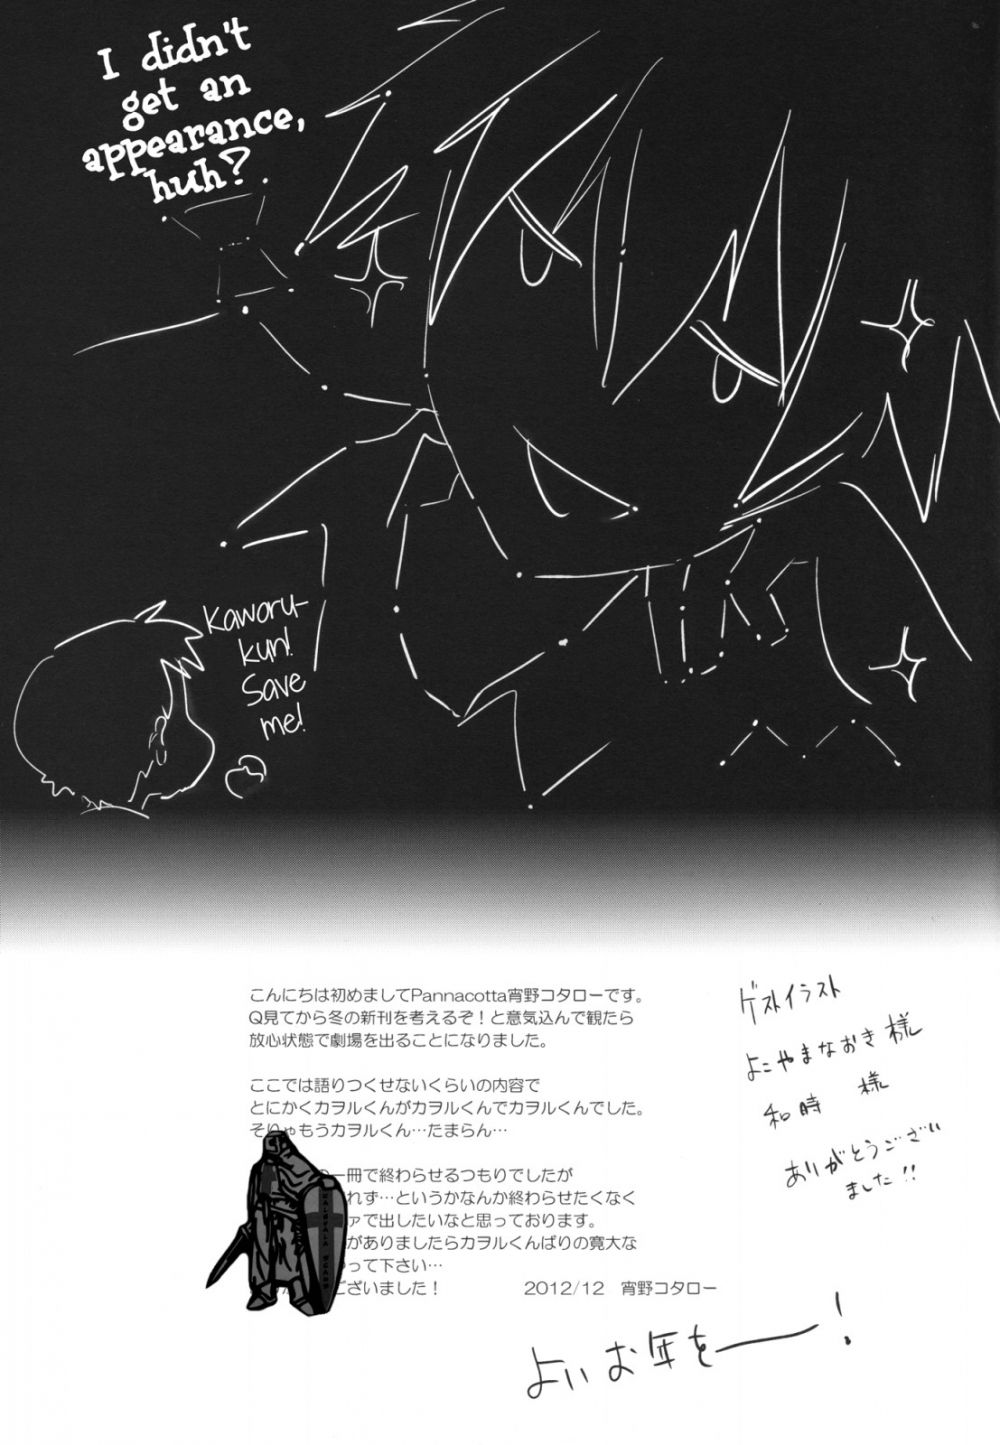 I didn't
get an
appearance,
huh?
Kaworu-
kun!
Save
me!
こんにちは初めましてPannacotta宵野コタローです。
Q見てから冬の新刊を考えるぞ！と意気込んで観たら
放心状態で劇場を出ることになりました。
ここでは語りつくせないくらいの内容で
とにかくカヲルくんがカヲルくんでカヲルくんでした。
そりゅもうカヲルくん…たまらん…
の一冊で終わらせるつもりでしたが
れず…というかなんか終わらせたくなく
ァで出したいなと思っております。
がありましたらカヲルくんばりの寛大な
って下さい…
ございました！
2012/12 宵野コタロー
ゲストイラスト
よこやまなおき様
和時 様
ありがとうござい
ました!!
よいお年をー!